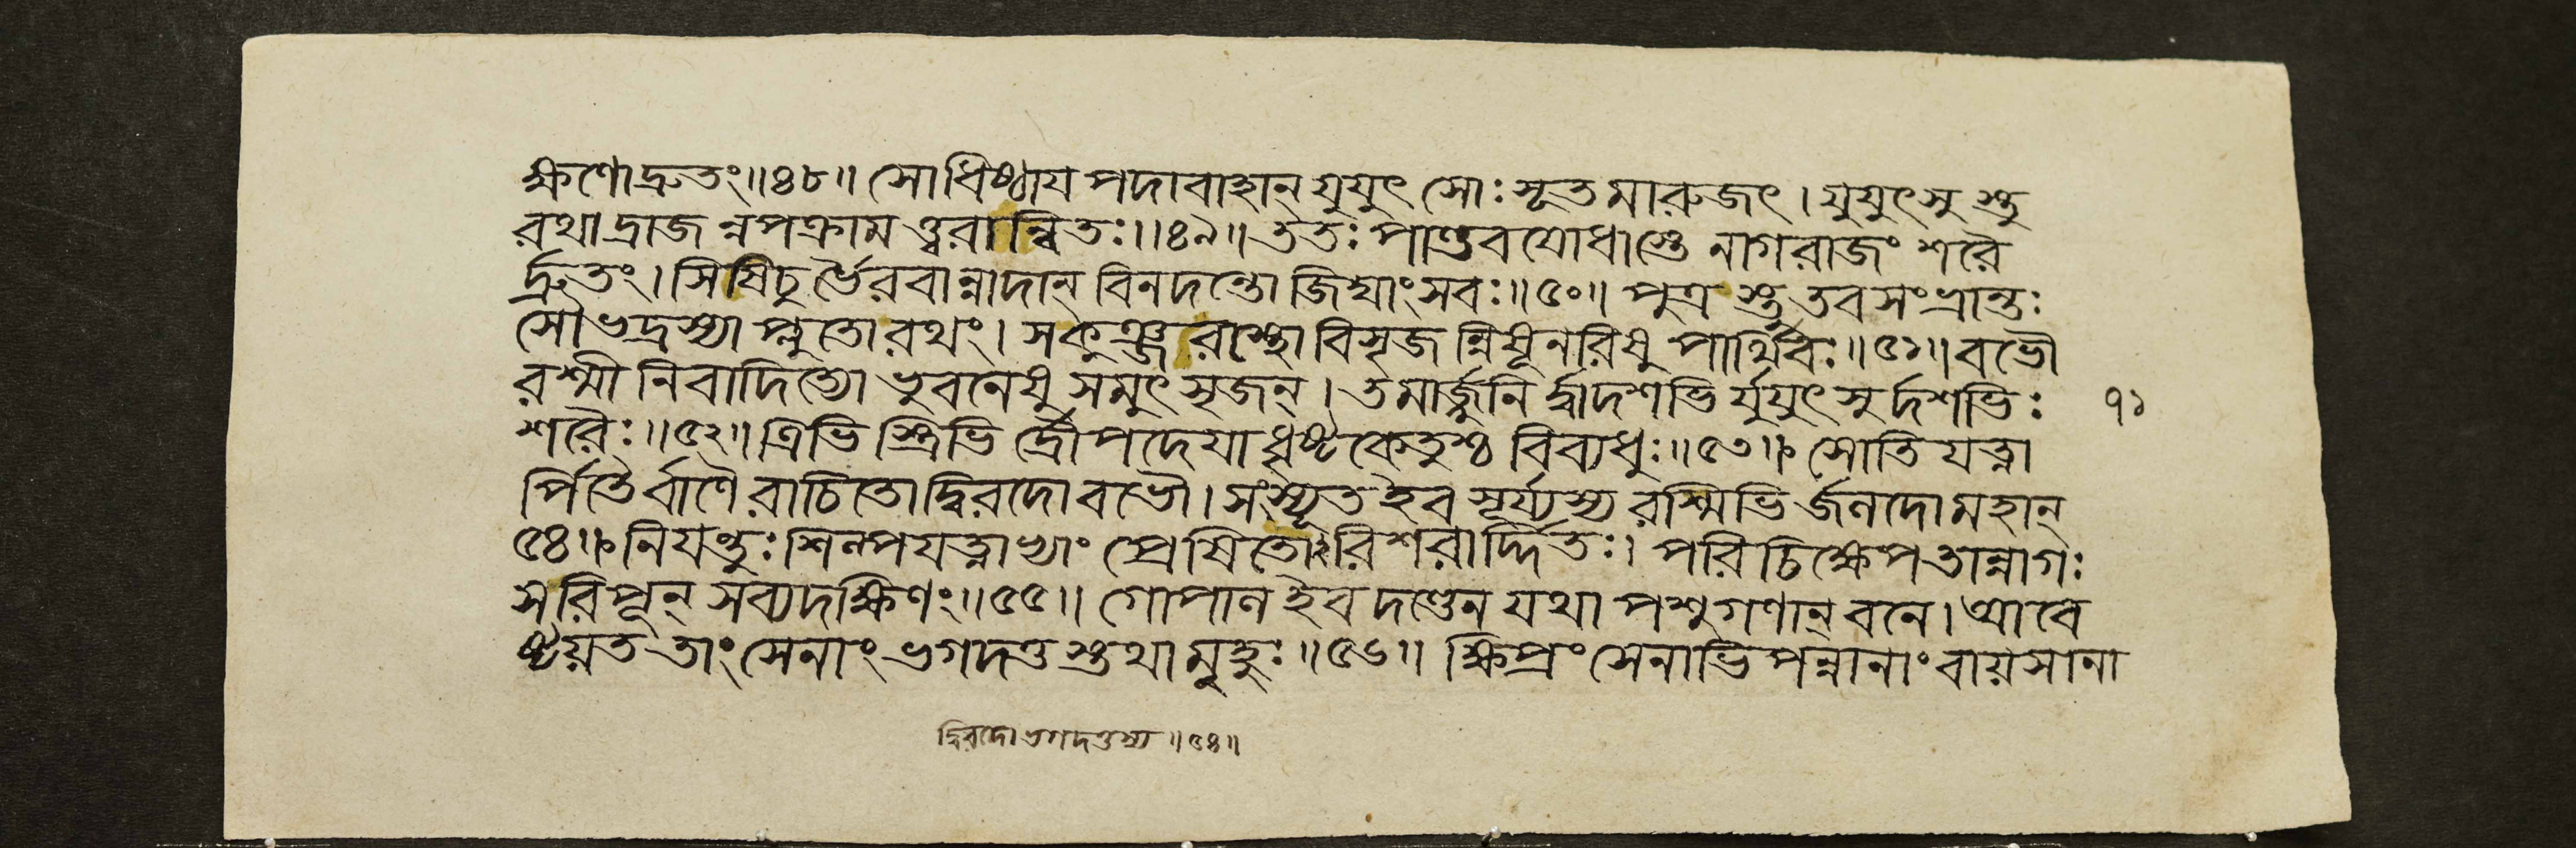 ক্ষিণোদ্রুতং॥৪৮॥ সোধিষ্ঠায পদাবাহান্ যুযুৎ সোঃ সূত মারুজৎ। যুযুৎসু স্তু
রথাদ্রাজ ন্নপক্রাম ত্ত্বরান্বিতঃ॥৪৯॥ ততঃ পাণ্ডব যোধাস্তে নাগরাজং শরৈ
র্দ্রুতং। সিষিচু র্ভৈরবান্নাদান্ বিনদন্তো জিঘাংসবঃ॥৫০॥ পুত্র স্তু তব সংভ্রান্তঃ
সৌভদ্রস্যা প্লুতোরথং। সকুঞ্জরাস্থো বিসৃজ ন্নিষূনরিষু পার্থিবঃ॥৫১॥ বভৌ
রশ্মী নিবাদিত্যো ভুবনেষু সমুৎ সৃজন্। তমার্জ্জুনি র্দ্বাদশভি র্যুযুৎ সুর্দশভিঃ ৭১
শরৈঃ॥৫২॥ ত্রিভি স্ত্রিভি র্দ্রৌপদেযা ধৃষ্টকেতুশ্চ বিব্যধুঃ॥৫৩॥ সোতি যত্না
র্পিতৈর্বাণৈ রাচিতোদ্বিরদোবভৌ। সংস্যূত ইব সূর্য্যস্য রশ্মিভি র্জলদোমহান্
৫৪॥ নিযন্তুঃ শিল্পযত্নাভ্যাং প্রেষিতো রিশরার্দ্দিতঃ। পরিচিক্ষেপতান্নাগঃ
সরিপূন্ সব্যদক্ষিণং॥৫৫॥ গোপাল ইব দণ্ডেন যথা পশুগণান্ বনে। আবে
ষ্টয়ত তাং সেনাং ভগদত্ত স্তথা মুহুঃ॥৫৬॥ ক্ষিপ্রং সেনাভিপন্নানাং বায়সানা
দ্বিরদো ভগদত্তস্য॥৫৪॥